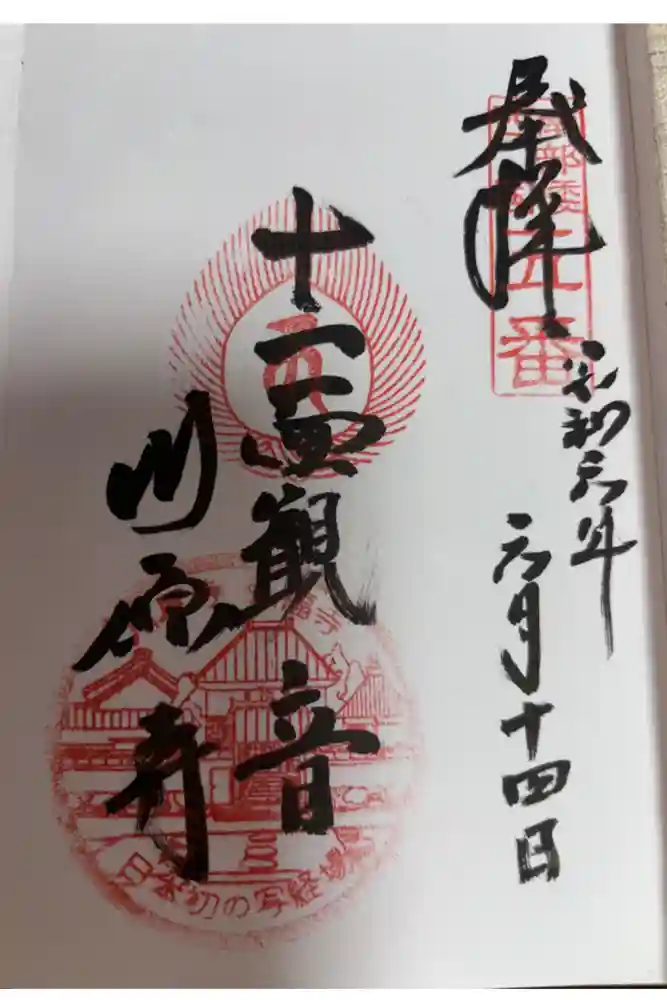 奉拝
令和六年
六月十四日
十一面観音
川原寺
五番
福寺
日本初の写経場